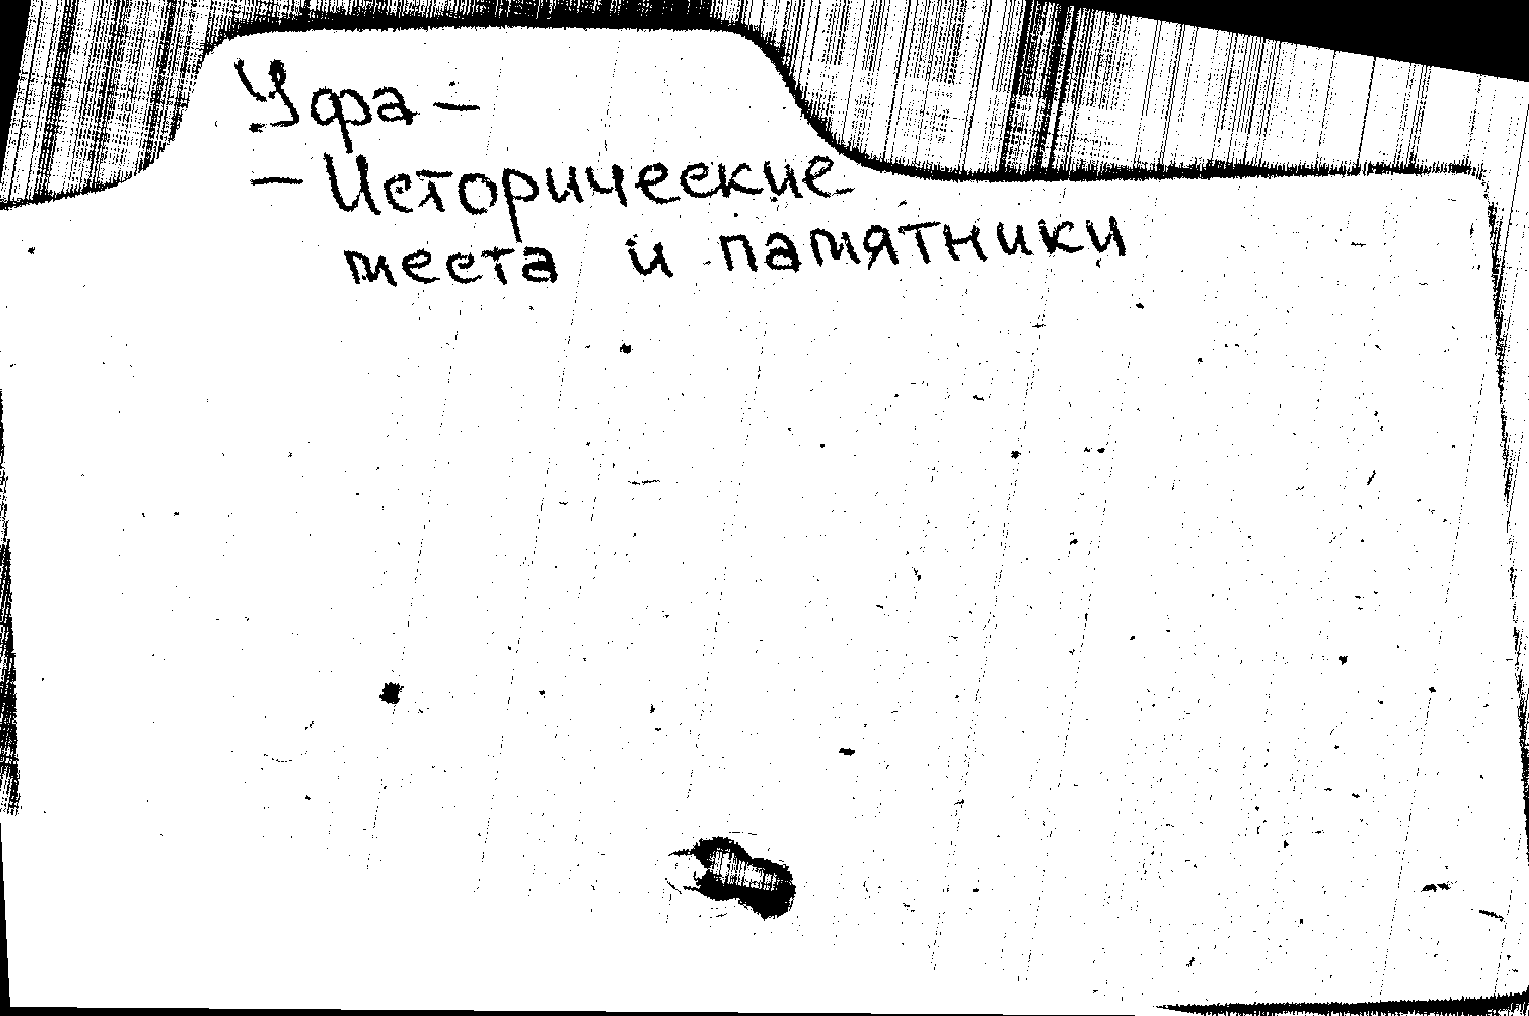 Уфа —
— Исторические
места и памятники